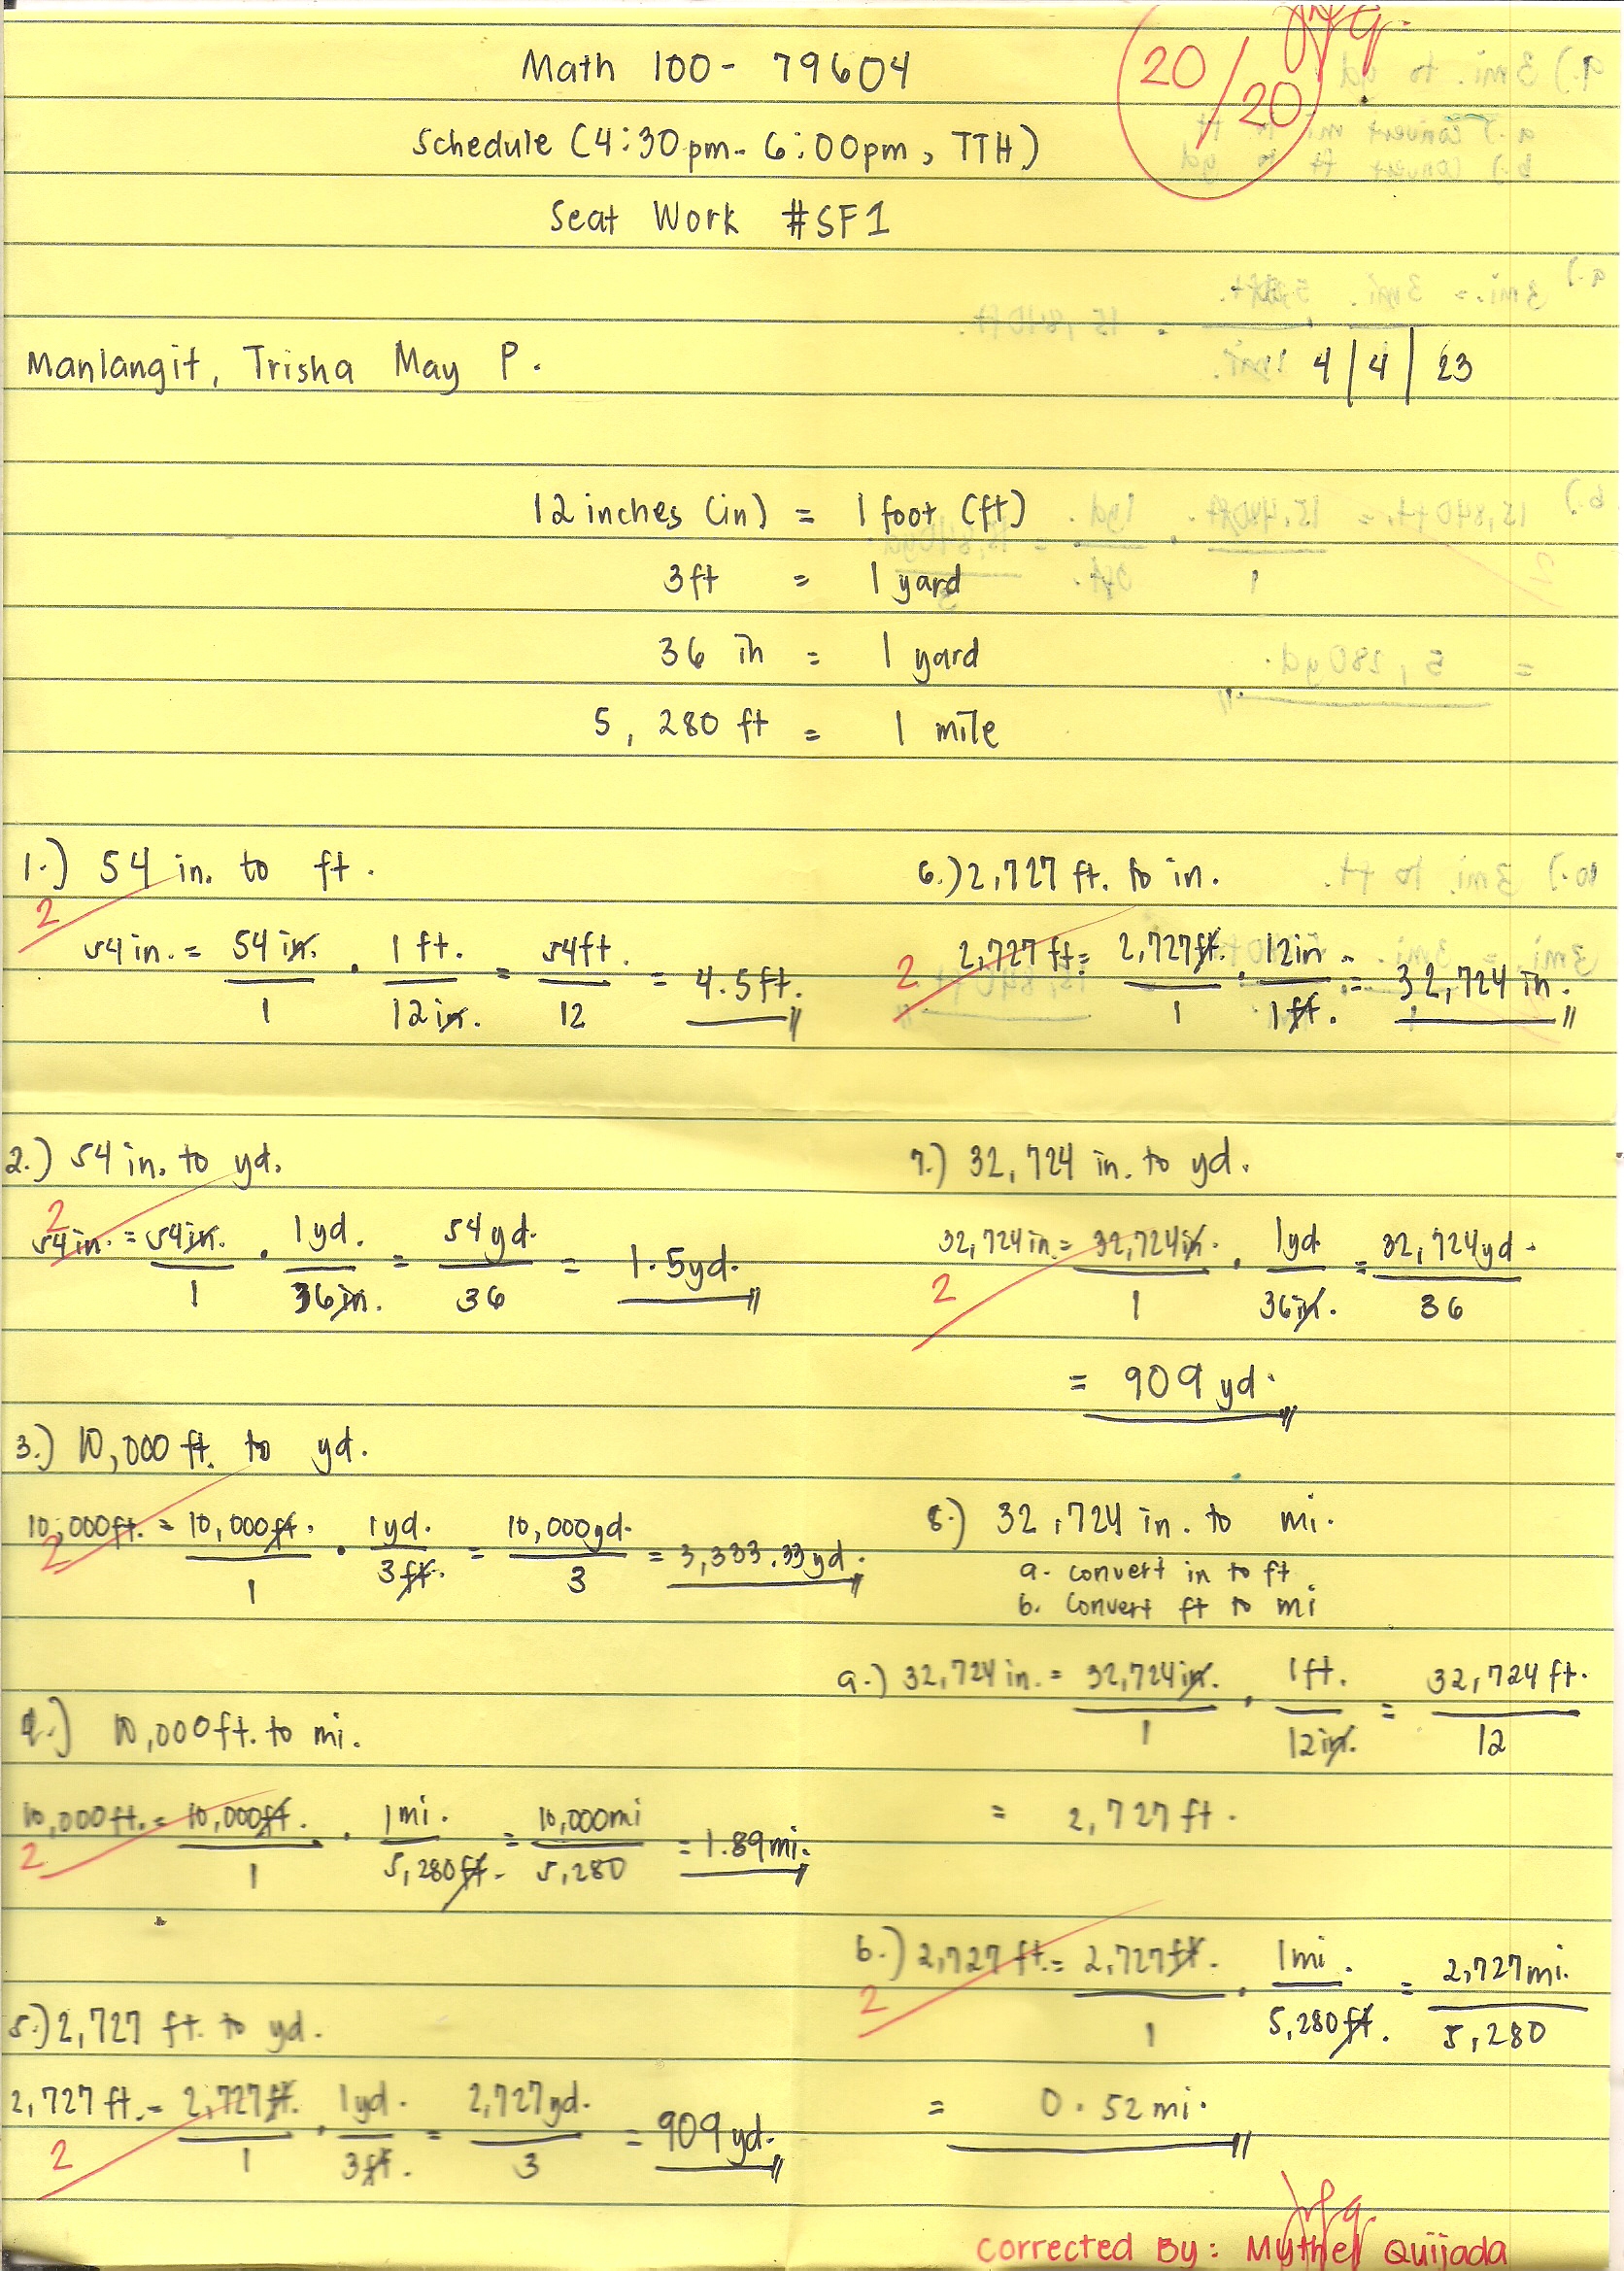 20/20
Math 100 - 79604
Schedule (4:30pm - 6:00pm, TTH)
Seat Work #SF1
Manlangit, Trisha May P. 4/4/23
12 inches (in) = 1 foot (ft)
3ft = 1 yard
36 in = 1 yard
5,280 ft = 1 mile
1.) 54 in. to ft.
2
54 in. = 54 in. / 1 · 1 ft. / 12 in. = 54 ft. / 12 = 4.5 ft.
2.) 54 in. to yd.
2
54 in. = 54 in. / 1 · 1 yd. / 36 in. = 54 yd. / 36 = 1.5 yd.
3.) 10,000 ft. to yd.
2
10,000 ft. = 10,000 ft. / 1 · 1 yd. / 3 ft. = 10,000 yd. / 3 = 3,333.33 yd.
4.) 10,000 ft. to mi.
2
10,000 ft. = 10,000 ft. / 1 · 1 mi. / 5,280 ft. = 10,000 mi / 5,280 = 1.89 mi.
5.) 2,727 ft. to yd.
2
2,727 ft. = 2,727 ft. / 1 · 1 yd. / 3 ft. = 2,727 yd. / 3 = 909 yd.
6.) 2,727 ft. to in.
2
2,727 ft. = 2,727 ft. / 1 · 12 in / 1 ft. = 32,724 in.
7.) 32,724 in. to yd.
2
32,724 in. = 32,724 in. / 1 · 1 yd / 36 in. = 32,724 yd. / 36
= 909 yd.
8.) 32,724 in. to mi.
a. convert in to ft
b. convert ft to mi
a.) 32,724 in. = 32,724 in. / 1 · 1 ft. / 12 in. = 32,724 ft. / 12
= 2,727 ft.
2
b.) 2,727 ft. = 2,727 ft. / 1 · 1 mi. / 5,280 ft. = 2,727 mi. / 5,280
= 0.52 mi.
Corrected By: Mythel Quijada